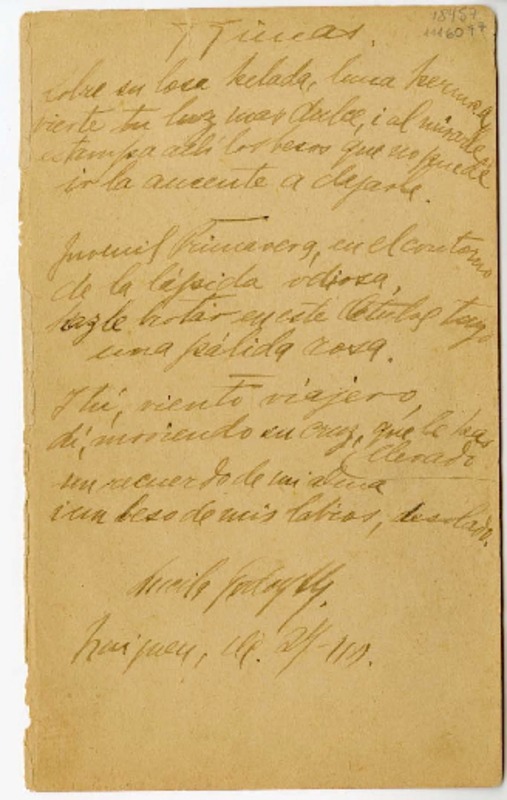 18457
Rimas.
sobre su losa helada, luna hermosa
vierte tu luz mas dulce, i al mirarte
estampa allí los besos que no puede
ir la ausente a dejarte.
Juvenil Primavera, en el contorno
de la lápida odiosa,
hazle brotar en este
una pálida rosa.
I tú, viento viajero
di, moviendo su cruz, que le has
llevado
un recuerdo de mi alma
i un beso de mis labios, desolado.
Lucila Godoy
Traiguen,